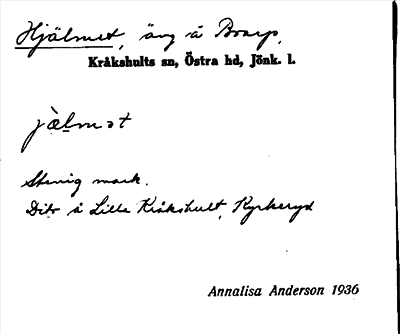 Hjälmet, äng å Broarp,
Kråkshults sn, Östra hd, Jönk. l.
jæ̀lmət
Stenig mark.
Dito å Lilla Kråkshult, Kyrkeryd
Annalisa Anderson 1936